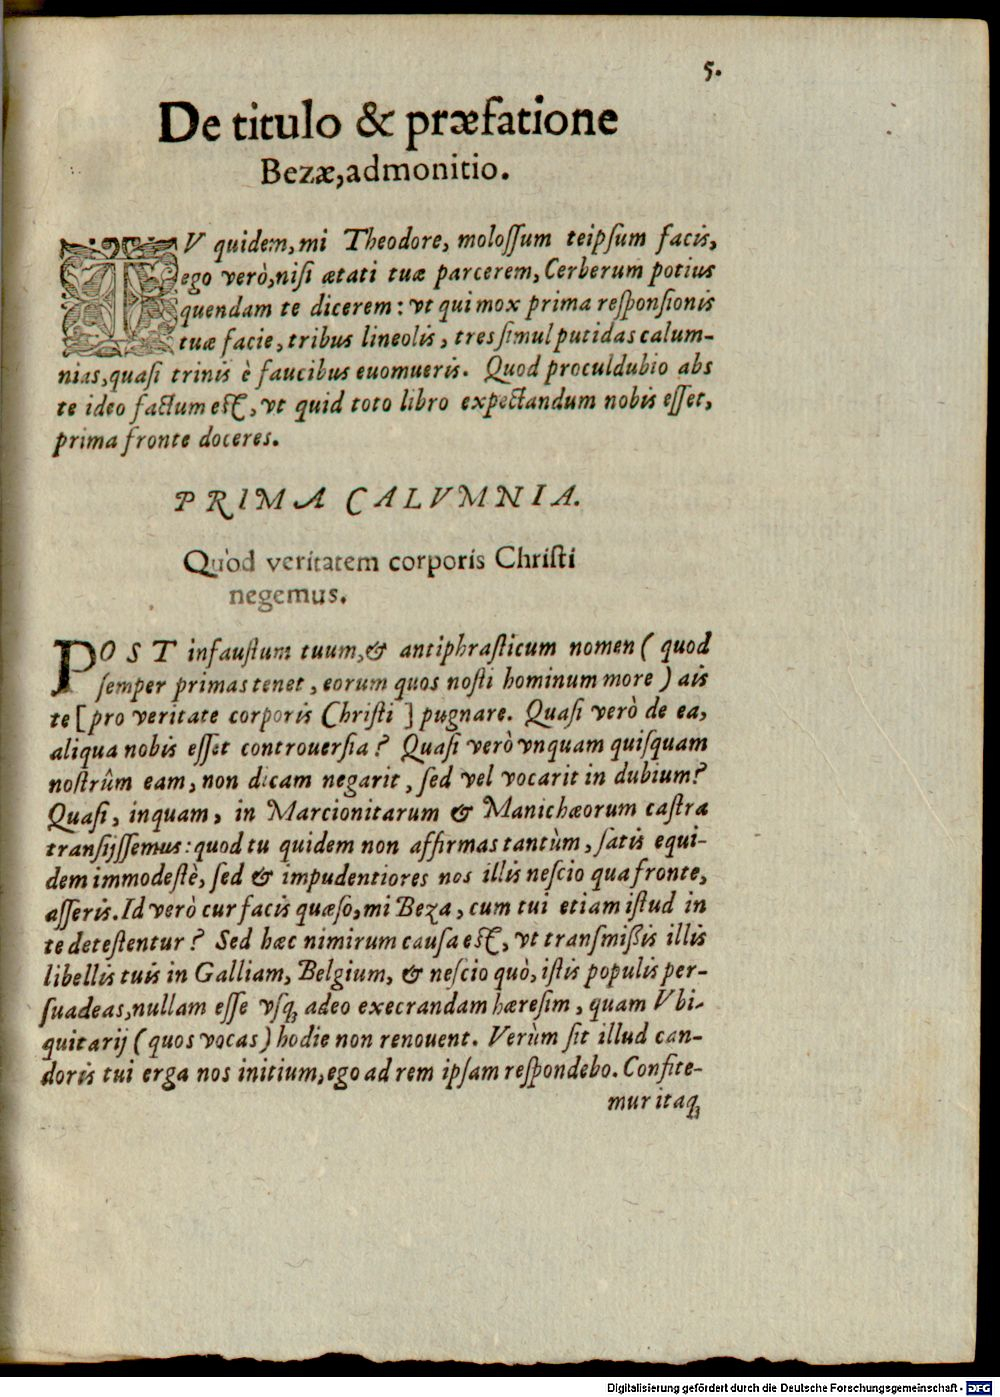 5.
De titulo & præfatione
Bezæ, admonitio.
TV quidem, mi Theodore, molossum teipsum facis,
ego verò, nisi ætati tuæ parcerem, Cerberum potius
quendam te dicerem: vt qui mox prima responsionis
tuæ facie, tribus lineolis, tres simul putidas calum-
nias, quasi trinis è faucibus euomueris. Quod proculdubio abs
te ideo factum est, vt quid toto libro expectandum nobis esset,
prima fronte doceres.
PRIMA CALVMNIA.
Quòd veritatem corporis Christi
negemus.
POST infaustum tuum, & antiphrasticum nomen ( quod
semper primas tenet, eorum quos nosti hominum more ) ais
te [ pro veritate corporis Christi ] pugnare. Quasi verò de ea,
aliqua nobis esset controuersia? Quasi verò vnquam quisquam
nostrûm eam, non dicam negarit, sed vel vocarit in dubium?
Quasi, inquam, in Marcionitarum & Manichæorum castra
transijssemus: quod tu quidem non affirmas tantùm, satis equi-
dem immodestè, sed & impudentiores nos illis nescio qua fronte,
asseris. Id verò cur facis quæso, mi Beza, cum tui etiam istud in
te detestentur? Sed hæc nimirum causa est, vt transmißis illis
libellis tuis in Galliam, Belgium, & nescio quò, istis populis per-
suadeas, nullam esse vsq; adeo execrandam hæresim, quam Vbi-
quitarij ( quos vocas ) hodie non renouent. Verùm sit illud can-
doris tui erga nos initium, ego ad rem ipsam respondebo. Confite-
mur itaq;
Digitalisierung gefördert durch die Deutsche Forschungsgemeinschaft - DFG